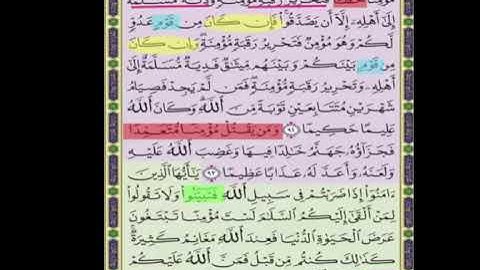 مُؤْمِنًا خَطَـًٔا فَتَحْرِيرُ رَقَبَةٍ مُّؤْمِنَةٍ وَدِيَةٌ مُّسَلَّمَةٌ
إِلَىٰٓ أَهْلِهِۦٓ إِلَّآ أَن يَصَّدَّقُوا۟ فَإِن كَانَ مِن قَوْمٍ عَدُوٍّ
لَّكُمْ وَهُوَ مُؤْمِنٌ فَتَحْرِيرُ رَقَبَةٍ مُّؤْمِنَةٍ وَإِن كَانَ
مِن قَوْمٍۭ بَيْنَكُمْ وَبَيْنَهُم مِّيثَـٰقٌ فَدِيَةٌ مُّسَلَّمَةٌ إِلَىٰٓ
أَهْلِهِۦ وَتَحْرِيرُ رَقَبَةٍ مُّؤْمِنَةٍ فَمَن لَّمْ يَجِدْ فَصِيَامُ
شَهْرَيْنِ مُتَتَابِعَيْنِ تَوْبَةً مِّنَ ٱللَّهِ وَكَانَ ٱللَّهُ
عَلِيمًا حَكِيمًا ٩٢ وَمَن يَقْتُلْ مُؤْمِنًا مُّتَعَمِّدًا
فَجَزَآؤُهُۥ جَهَنَّمُ خَـٰلِدًا فِيهَا وَغَضِبَ ٱللَّهُ عَلَيْهِ
وَلَعَنَهُۥ وَأَعَدَّ لَهُۥ عَذَابًا عَظِيمًا ٩٣ يَـٰٓأَيُّهَا ٱلَّذِينَ
ءَامَنُوٓا۟ إِذَا ضَرَبْتُمْ فِى سَبِيلِ ٱللَّهِ فَتَبَيَّنُوا۟ وَلَا تَقُولُوا۟
لِمَنْ أَلْقَىٰٓ إِلَيْكُمُ ٱلسَّلَـٰمَ لَسْتَ مُؤْمِنًا تَبْتَغُونَ
عَرَضَ ٱلْحَيَوٰةِ ٱلدُّنْيَا فَعِندَ ٱللَّهِ مَغَانِمُ كَثِيرَةٌ
كَذَٰلِكَ كُنتُم مِّن قَبْلُ فَمَنَّ ٱللَّهُ عَلَيْكُمْ